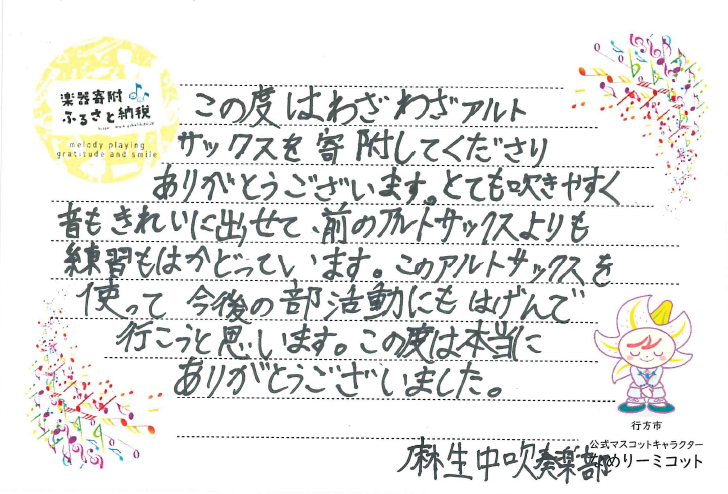 楽器寄附
ふるさと納税
melody playing
gratitude and smile
この度はわざわざアルト
サックスを寄附してくださり
ありがとうございます。とても吹きやすく
音もきれいに出せて、前のアルトサックスよりも
練習もはかどっています。このアルトサックスを
使って今後の部活動にもはげんで
行こうと思います。この度は本当に
ありがとうございました。
麻生中吹奏楽部
行方市
公式マスコットキャラクター
なめりーミコット